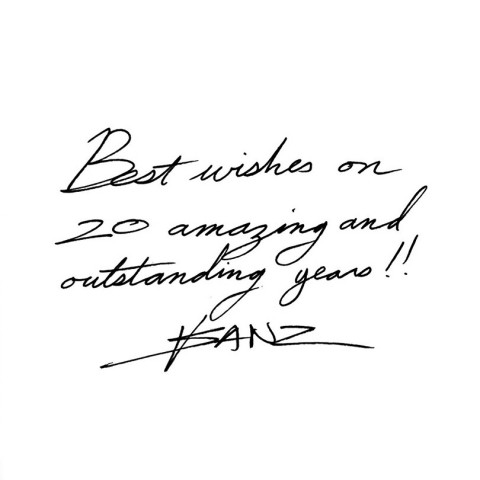 Best wishes on
20 amazing and
outstanding years!!